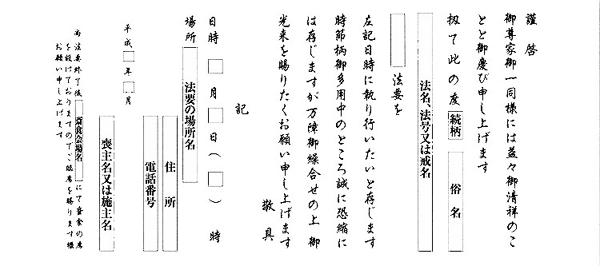 謹啓
御尊家御一同様には益々御清祥のこ
とと御慶び申し上げます
扨て此の度 続柄 俗名
法名、法号又は戒名
法要を
左記日時に執り行いたいと存じます
時節柄御多用中のところ誠に恐縮に
は存じますが万障御繰合せの上 御
光来を賜りたくお願い申し上げます
敬具
記
日時 月 日( ) 時
場所 法要の場所名
平成 年 月
住所
電話番号
喪主名又は施主名
尚 法要終了後 斎食会場名 にて壼食の席
を設けておりますのでご臨席を賜ります様
お願い申し上げます